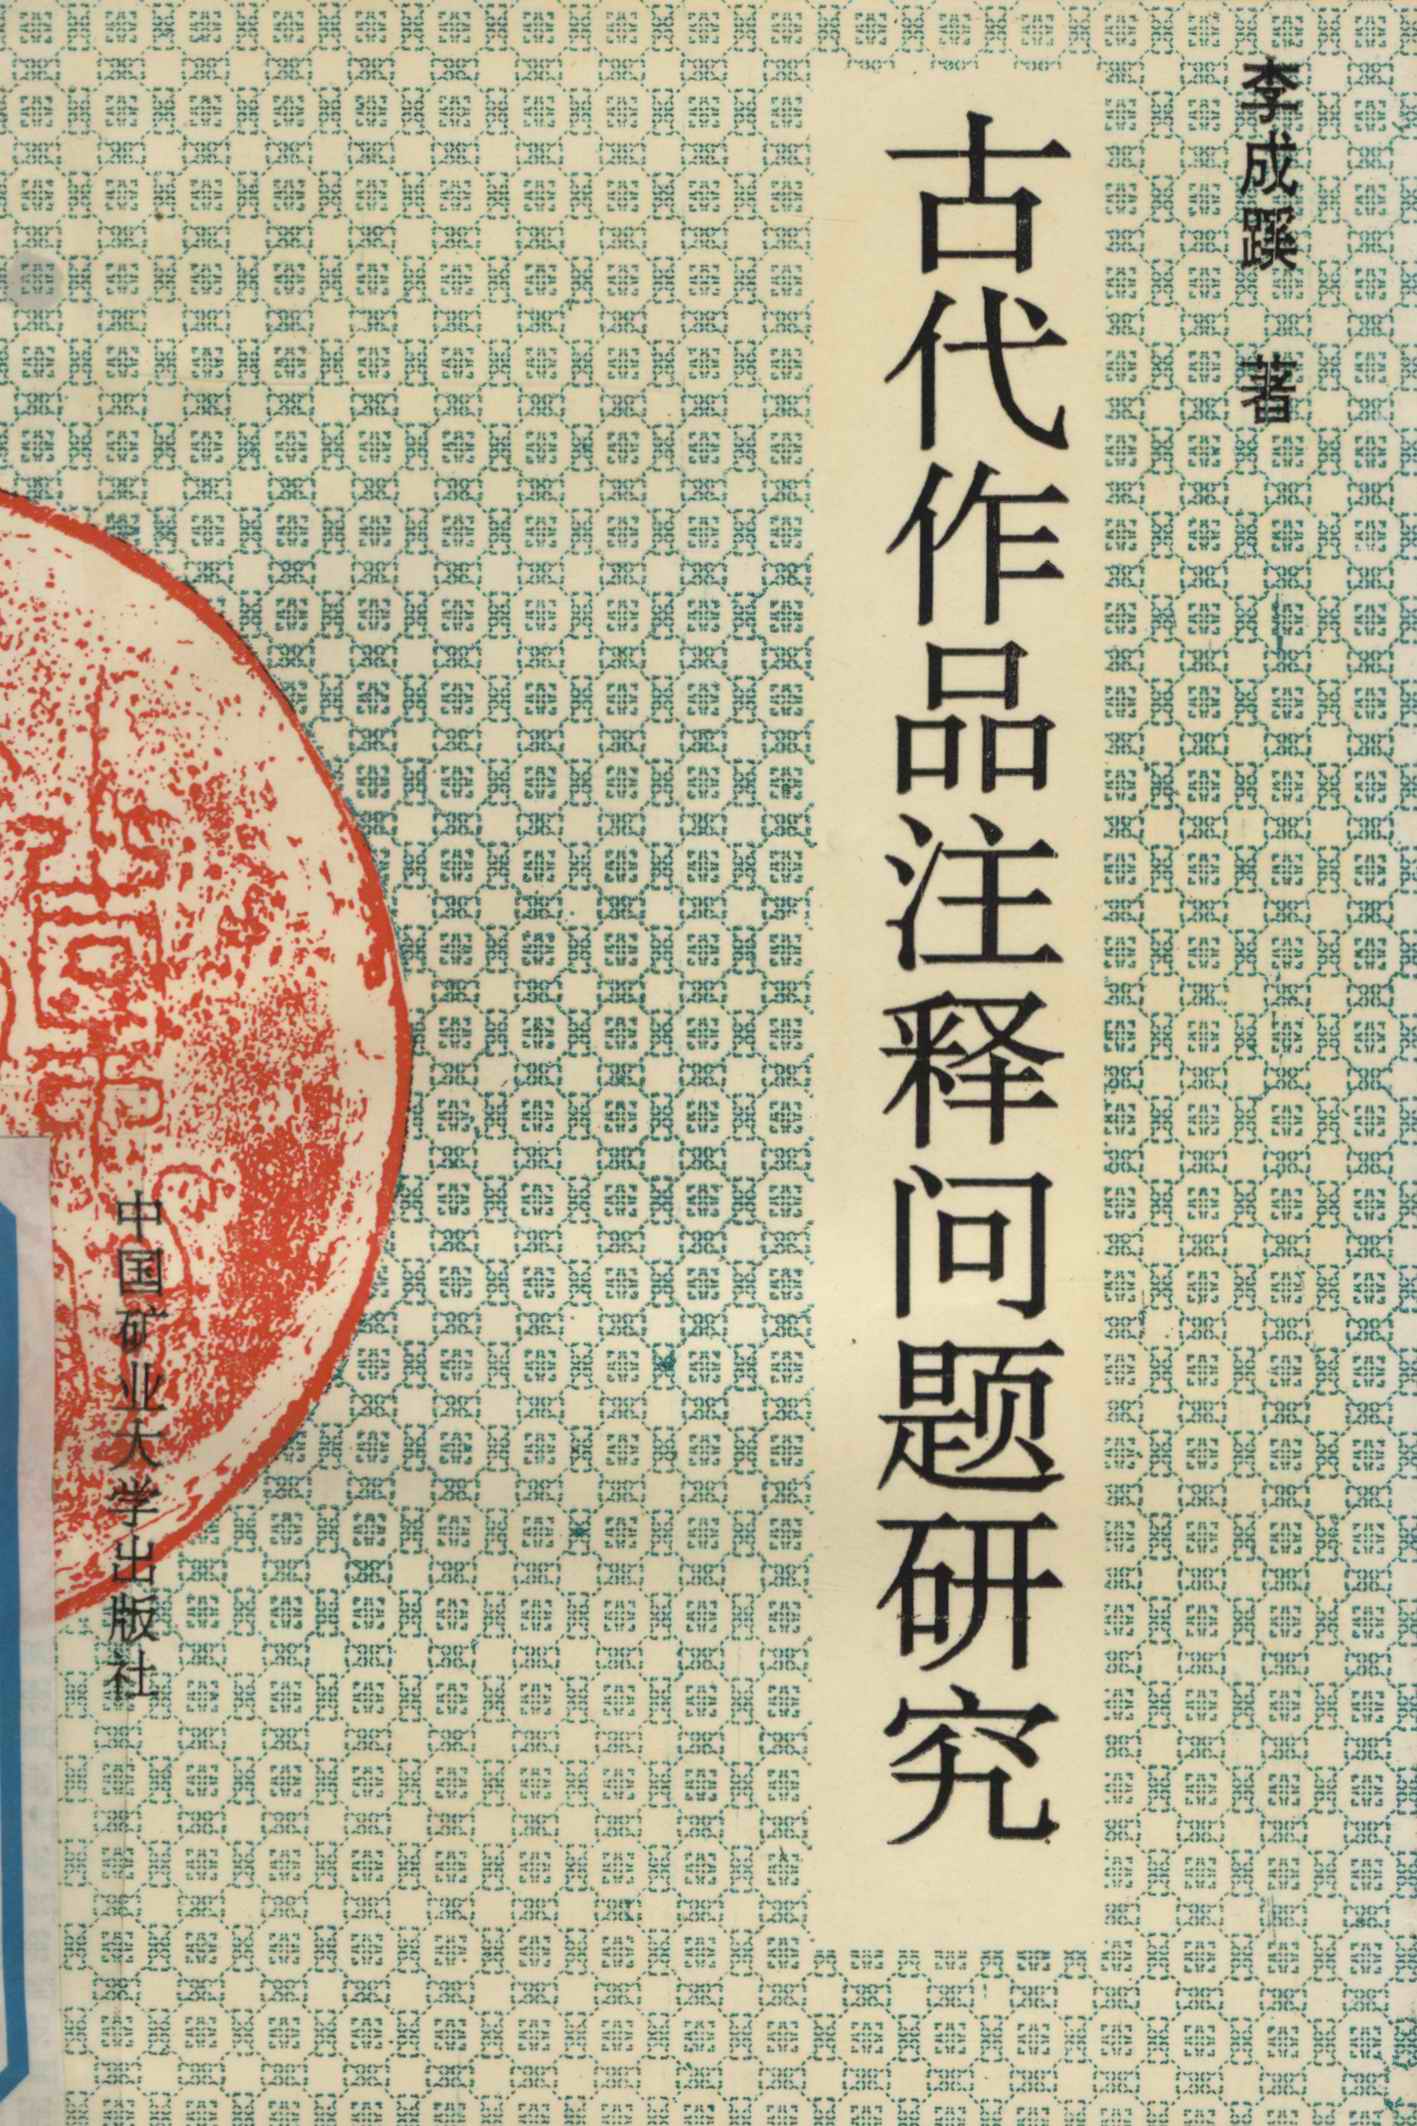 李成蹊 著
古代作品注释问题研究
中国矿业大学出版社